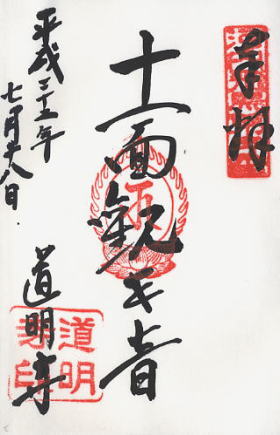 奉拝
十一面観世音
平成二十三年
七月廿八日
道明寺
道明
寺印